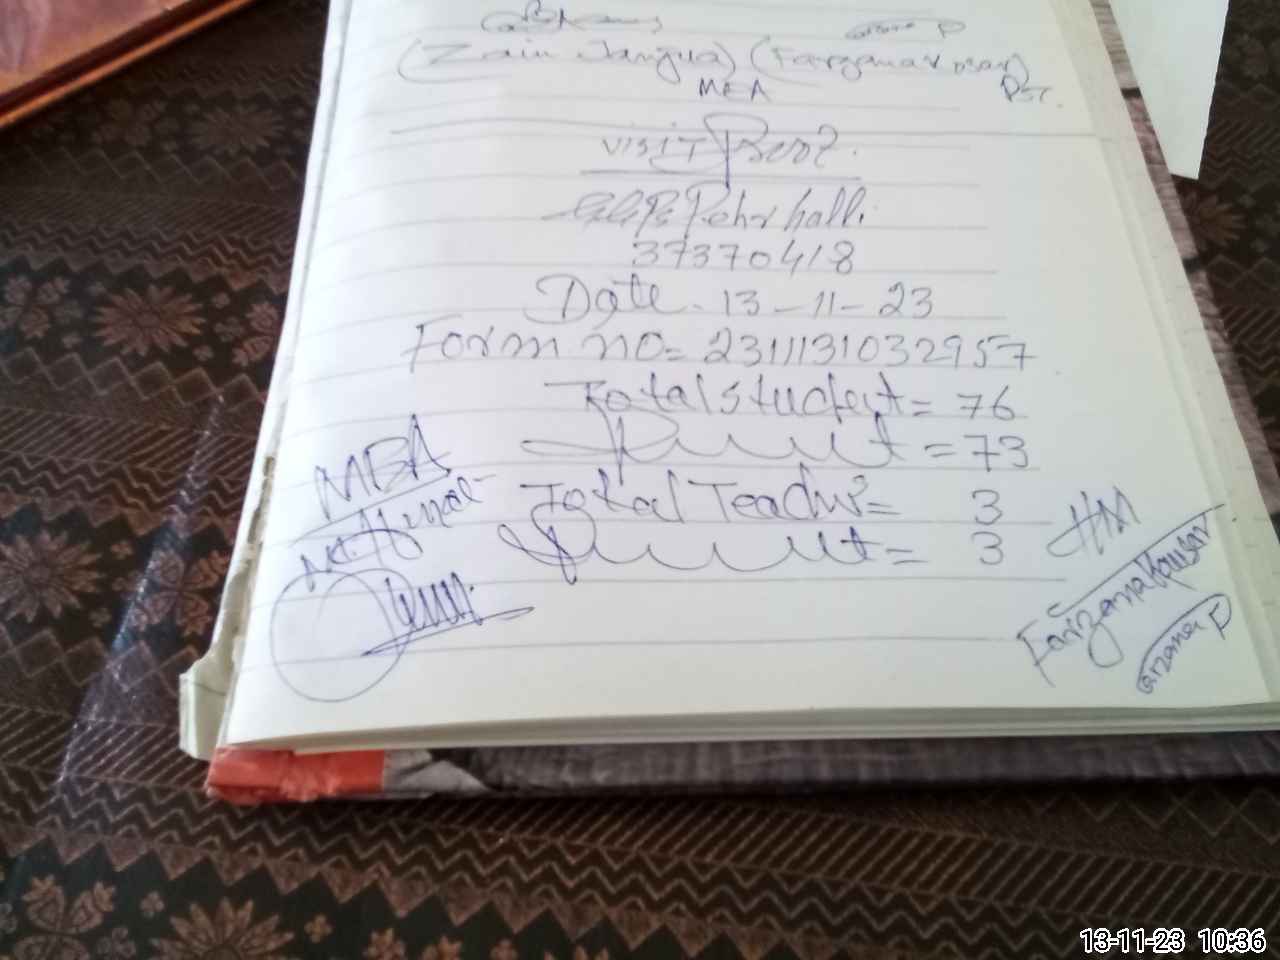 (Zain Janjua) (Farzana Kosar)
MEA PST.
VISIT Proof.
GGPS Pehr halli
37370418
Date - 13-11-23
Form no = 2311131032957
Total student = 76
Present = 73
Total Teacher = 3
Present = 3
MEA
HM
Farzana Kousar
13-11-23 10:36